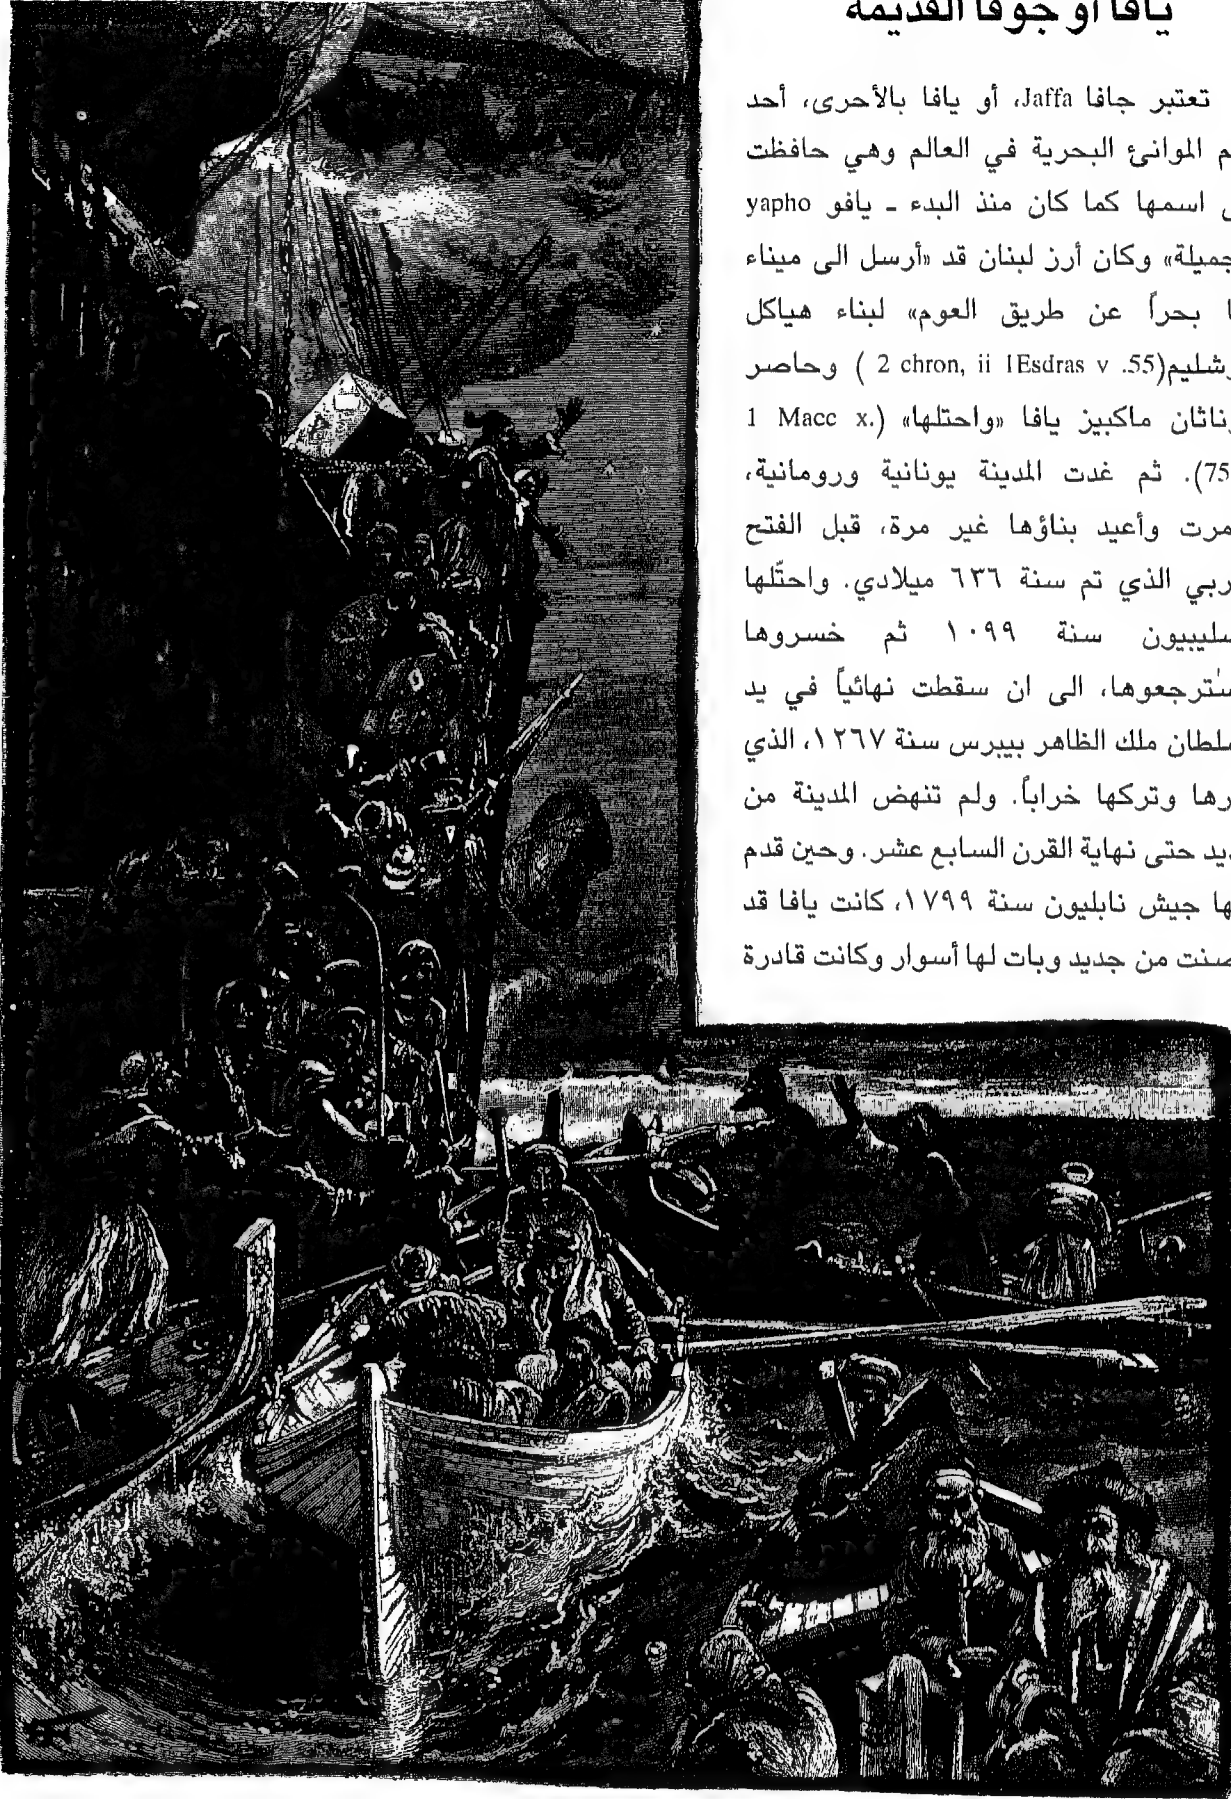 يافا او جوفا القديمة
تعتبر جافا Jaffa، أو يافا بالأحرى، أحد
م الموانئ البحرية في العالم وهي حافظت
اسمها كما كان منذ البدء ـ يافو yapho
جميلة» وكان أرز لبنان قد «أرسل الى ميناء
ا بحراً عن طريق العوم» لبناء هياكل
رشليم(2 chron, ii 1Esdras v .55 ) وحاصر
ناثان ماكبيز يافا «واحتلها» (.1 Macc x
75). ثم غدت المدينة يونانية ورومانية،
مرت وأعيد بناؤها غير مرة، قبل الفتح
ربي الذي تم سنة ٦٣٦ ميلادي. واحتّلها
سليبيون سنة ١٠٩٩ ثم خسروها
سترجعوها، الى ان سقطت نهائياً في يد
لطان ملك الظاهر بيبرس سنة ١٢٦٧، الذي
رها وتركها خراباً. ولم تنهض المدينة من
يد حتى نهاية القرن السابع عشر. وحين قدم
ها جيش نابليون سنة ١٧٩٩، كانت يافا قد
صنت من جديد وبات لها أسوار وكانت قادرة